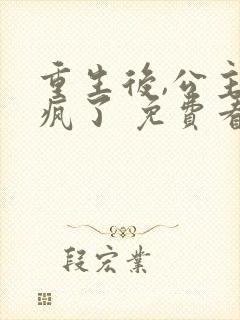 重生後,公主
瘋了 免費看
段宏業